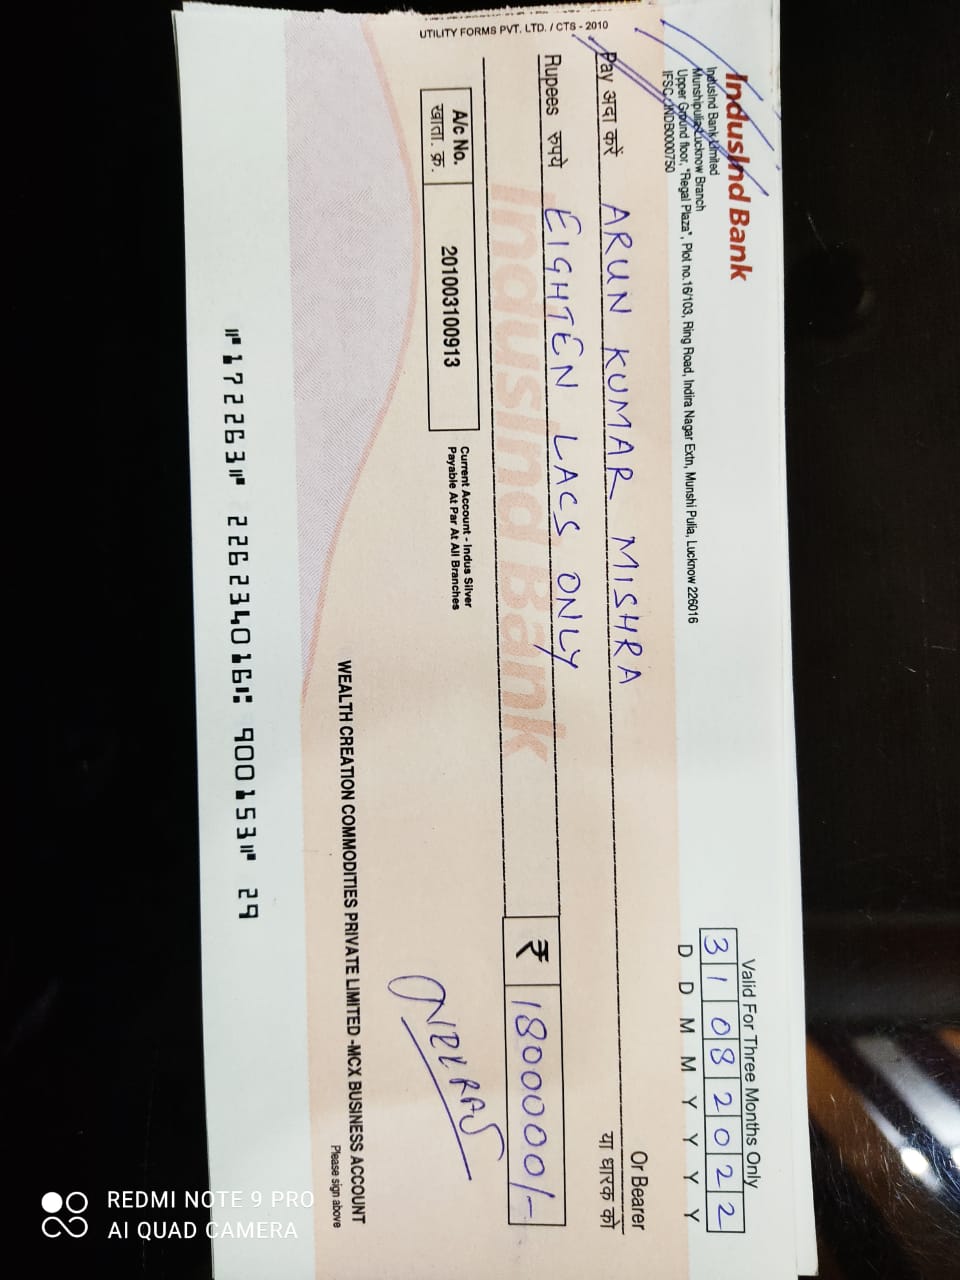 UTILITY FORMS PVT. LTD. / CTS - 2010
IndusInd Bank
IndusInd Bank Limited
Munshipulia Lucknow Branch
Upper Ground floor, "Regal Plaza", Plot no.16/103, Ring Road, Indira Nagar Extn, Munshi Pulia, Lucknow 226016
IFSC: INDB0000750
Valid For Three Months Only
3 1 0 8 2 0 2 2
D D M M Y Y Y Y
Pay अदा करें ARUN KUMAR MISHRA
Or Bearer
या धारक को
Rupees रुपये EIGHTEN LACS ONLY
₹ 1800000/-
IndusInd Bank
A/c No.
खाता. क्र.
201003100913
Current Account - Indus Silver
Payable At Par At All Branches
WEALTH CREATION COMMODITIES PRIVATE LIMITED -MCX BUSINESS ACCOUNT
Please sign above
⑈172263⑈ 226234016⑆ 900153⑈ 29
REDMI NOTE 9 PRO
AI QUAD CAMERA